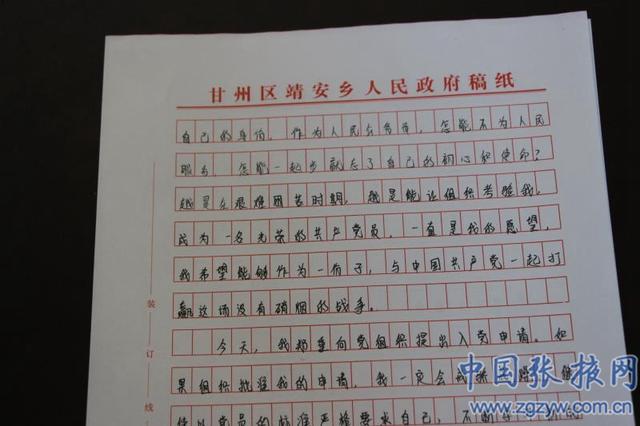 甘州区靖安乡人民政府稿纸
自己的身份。作为人民公务员，怎能不为人民
服务，怎能一起步就忘了自己的初心和使命？
越是在艰难困苦时期，越是能让组织考验我。
成为一名光荣的共产党员，一直是我的愿望，
我希望能够作为一份子，与中国共产党一起打
赢这场没有硝烟的战争。
今天，我郑重向党组织提出入党申请。如
果组织批准我的申请，我一定会
党员的标准严格要求自己，不断
装
订
线
中国张掖网
www.zgzyw.com.cn